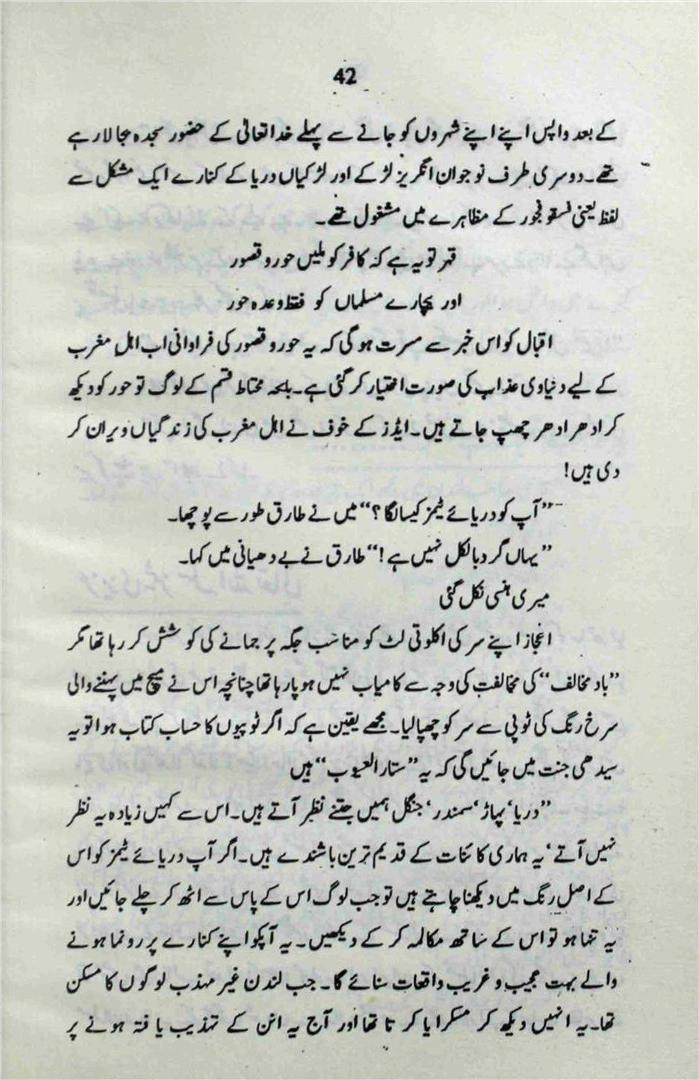 42
کے بعد واپس اپنے اپنے شہروں کو جانے سے پہلے خدا تعالیٰ کے حضور سجدہ بجا لا رہے
تھے۔ دوسری طرف نوجوان انگریز لڑکے اور لڑکیاں دریا کے کنارے ایک مشکل سے
لفظ یعنی فسق و فجور کے مظاہرے میں مشغول تھے۔
قہر تو یہ ہے کہ کافر کو ملیں حور و قصور
اور بیچارے مسلماں کو فقط وعدہ حور
اقبال کو اس خبر سے مسرت ہو گی کہ یہ حور و قصور کی فراوانی اب اہل مغرب
کے لیے دنیاوی عذاب کی صورت اختیار کر گئی ہے۔ بلکہ محتاط قسم کے لوگ تو حور کو دیکھ
کر ادھر ادھر چھپ جاتے ہیں۔ ایڈز کے خوف نے اہل مغرب کی زندگیاں ویران کر
دی ہیں!
”آپ کو دریائے ٹیمز کیسا لگا؟“ میں نے طارق طور سے پوچھا۔
”یہاں گرد بالکل نہیں ہے!“ طارق نے بے دھیانی میں کہا۔
میری ہنسی نکل گئی
اعجاز اپنے سر کی اکلوتی لٹ کو مناسب جگہ پر جمانے کی کوشش کر رہا تھا مگر
”باد مخالف“ کی مخالفت کی وجہ سے کامیاب نہیں ہو پا رہا تھا چنانچہ اس نے میچ میں پہننے والی
سرخ رنگ کی ٹوپی سے سر کو چھپا لیا۔ مجھے یقین ہے کہ اگر ٹوپیوں کا حساب کتاب ہوا تو یہ
سیدھی جنت میں جائیں گی کہ یہ ”ستار العیوب“ ہیں
”دریا‘ پہاڑ‘ سمندر‘ جنگل ہمیں جتنے نظر آتے ہیں۔ اس سے کہیں زیادہ یہ نظر
نہیں آتے‘ یہ ہماری کائنات کے قدیم ترین باشندے ہیں۔ اگر آپ دریائے ٹیمز کو اس
کے اصل رنگ میں دیکھنا چاہتے ہیں تو جب لوگ اس کے پاس سے اٹھ کر چلے جائیں اور
یہ تنہا ہو تو اس کے ساتھ مکالمہ کر کے دیکھیں۔ یہ آپکو اپنے کنارے پر رونما ہونے
والے بہت عجیب و غریب واقعات سنائے گا۔ جب لندن غیر مہذب لوگوں کا مسکن
تھا۔ یہ انہیں دیکھ کر مسکرایا کرتا تھا اور آج یہ ان کے تہذیب یافتہ ہونے پر